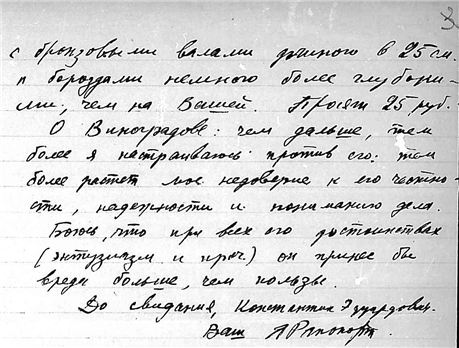 3
с бронзовыми валами длиного в 25 см.
и бороздами немного более глубоки-
ми, чем на Вашей. Просят 25 руб.
О Виноградове: чем дальше, тем
более я настраиваюсь против его: тем
более растет мое недоверие к его честно-
сти, надежности и пониманию дела.
Боюсь, что при всех его достоинствах
(энтузиазм и проч.) он принес бы
вреда больше, чем пользы.
До свидания, Константин Эдуардович.
Ваш